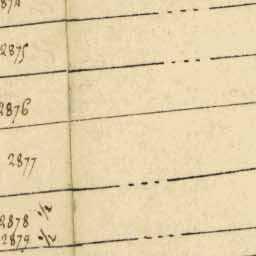 2874
2875
2876
2877
2878 ½
2879 ½